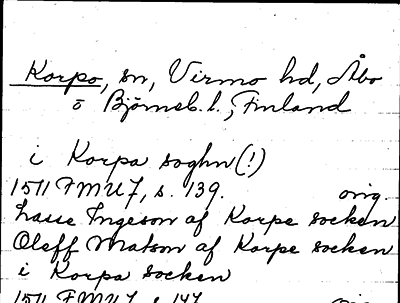 Korpo, sn, Virmo hd, Åbo
o Björneb. l., Finland
i Korpa soghn (!)
1511 FMU 7, s. 139. orig.
Lasse Ingeson af Korpe socken
Oleff Matson af Korpe socken
i Korpa socken
1511 FMU 7, s. 147. orig.